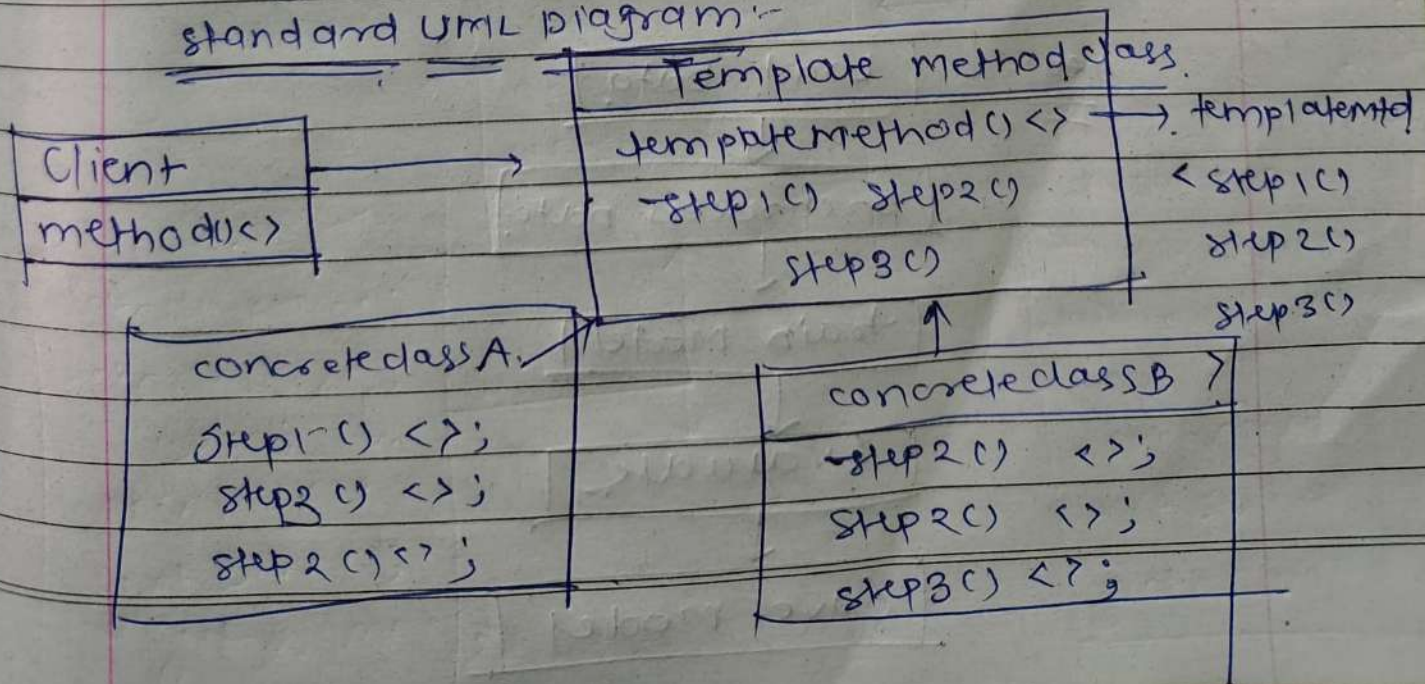 standard UML Diagram:-
Template method class.
tempatemethod() <> → templatemtd
-step1() step2()
step3()
< step1()
step2()
step3()
>
Client
method1()<>
concreteclassA.
Step1-() <>;
step2() <>;
step2()<>;
concreteclassB
-step2() <>;
step2() <>;
step3() <>;